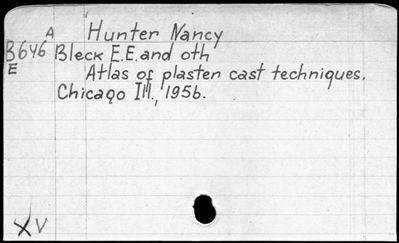 A Hunter Nancy
B646 Bleck E.E. and oth
E Atlas of plaster cast techniques.
Chicago Ill., 1956.
XV